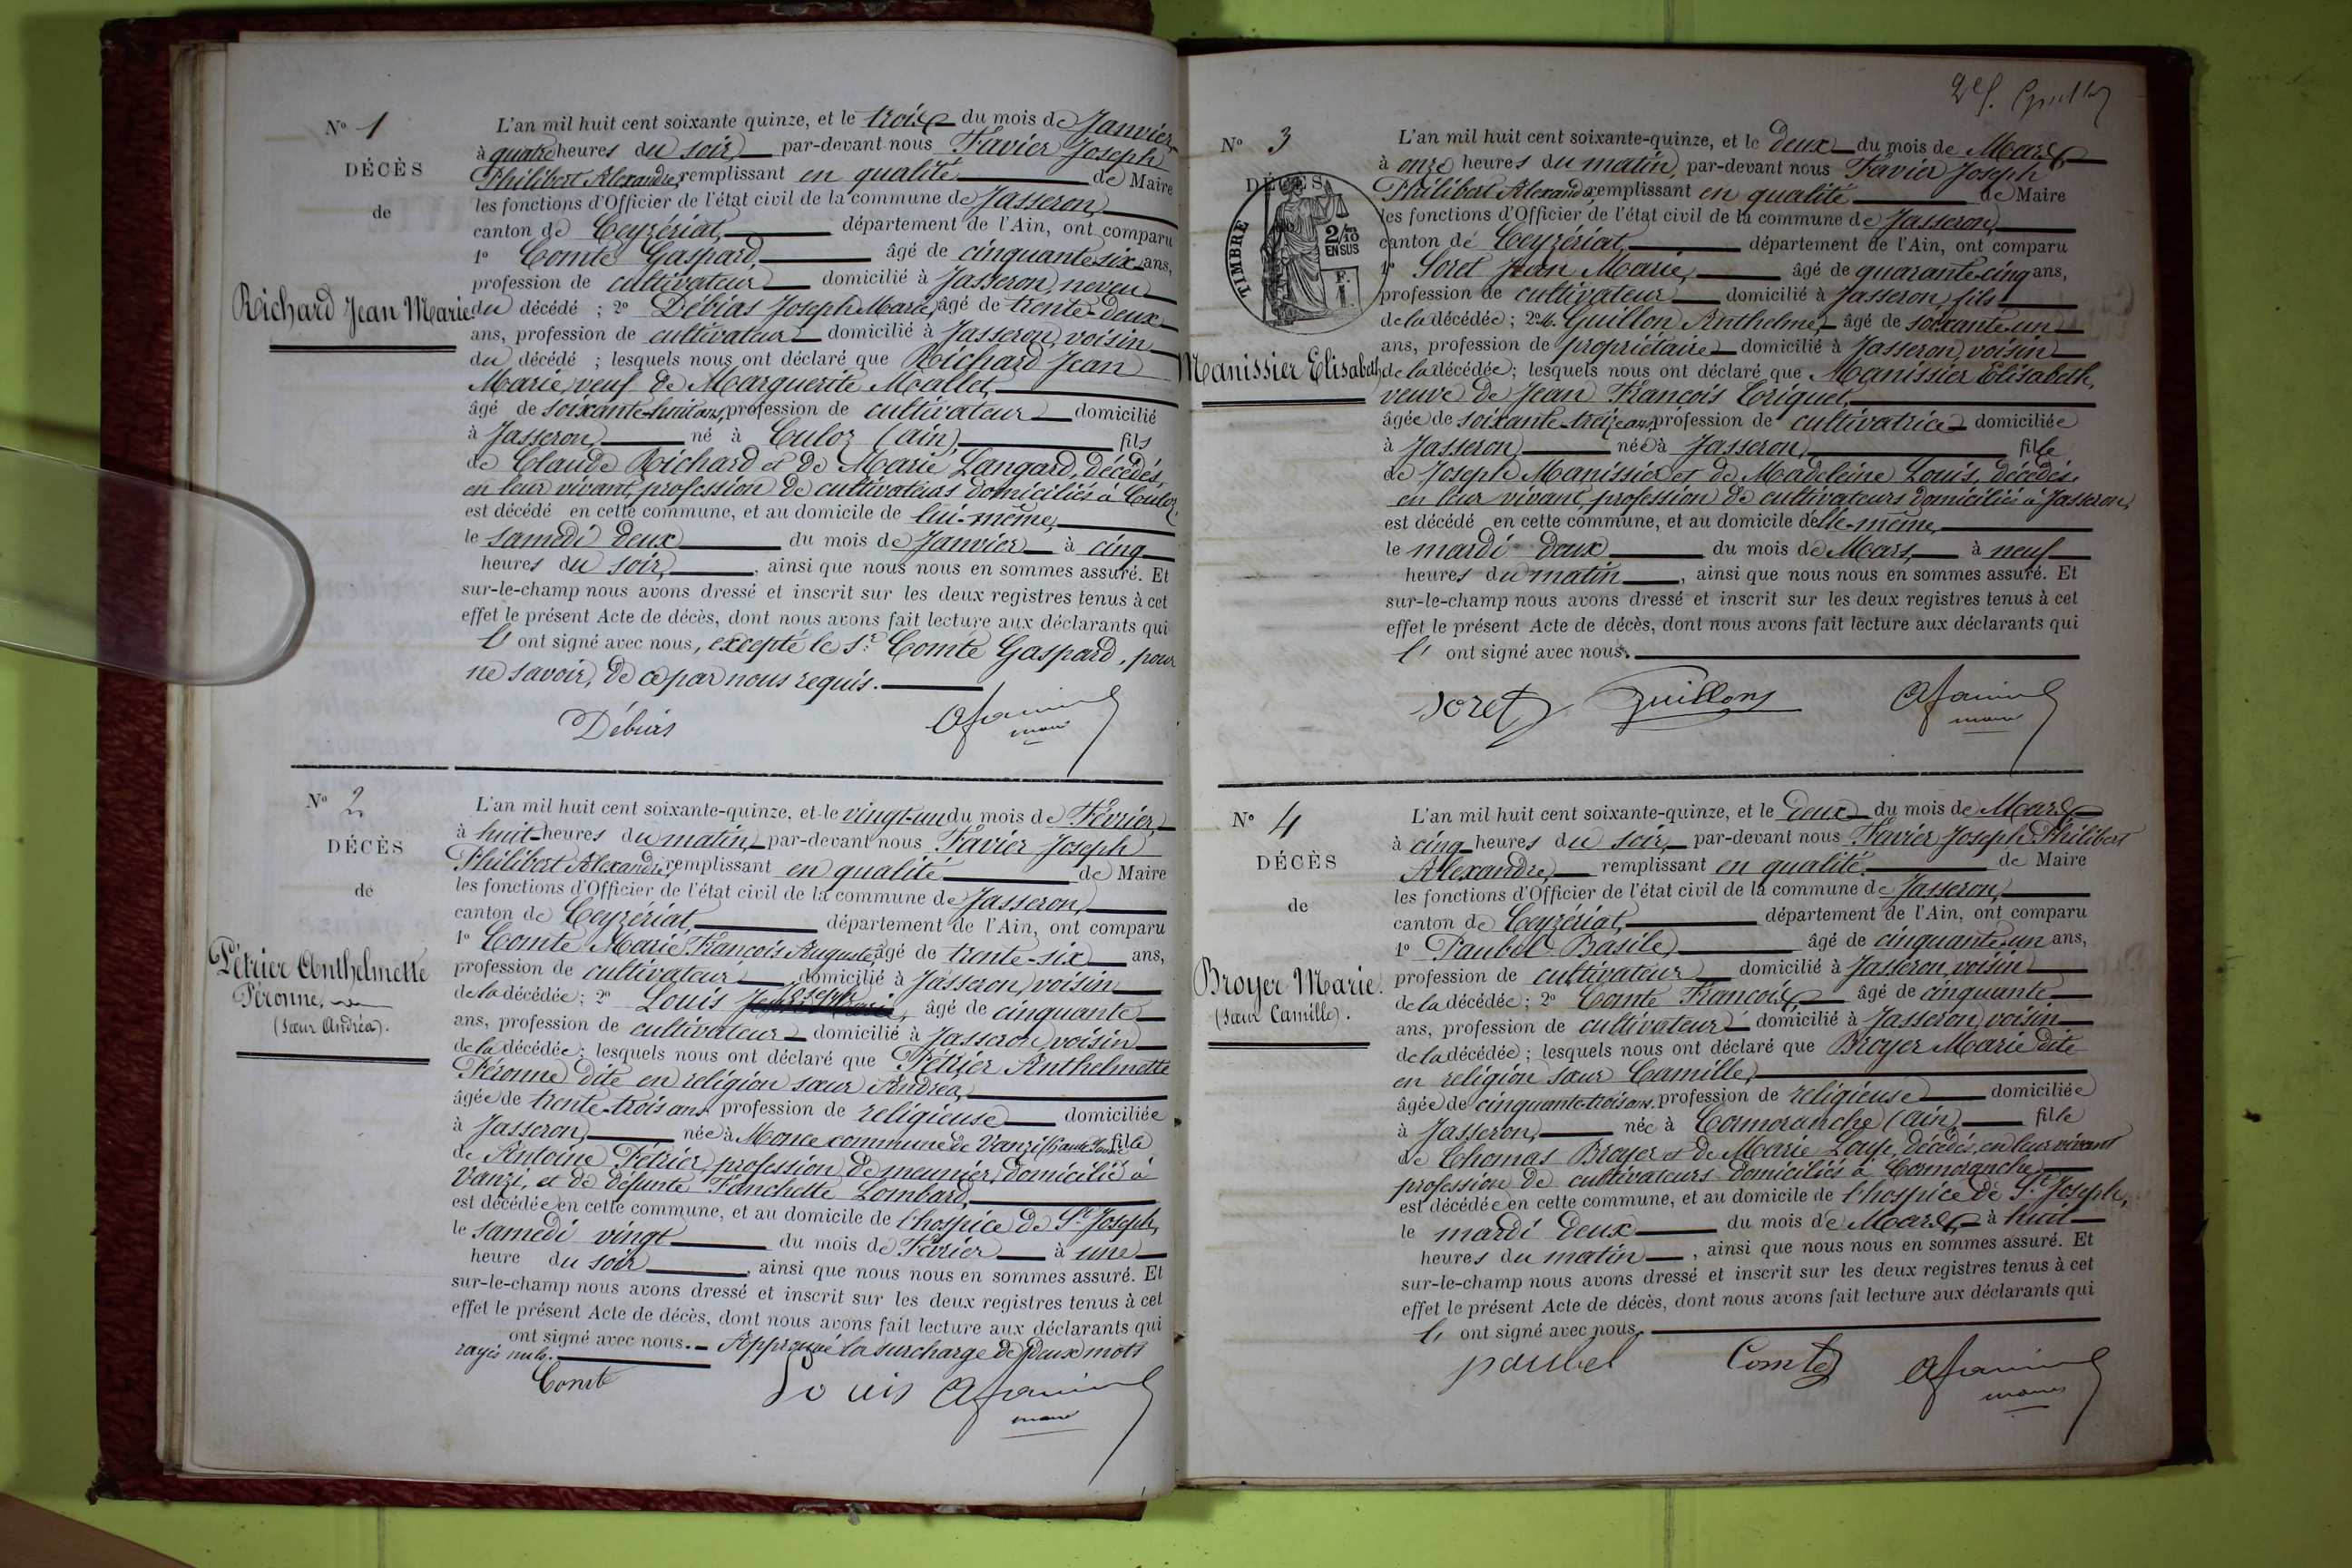 N° 1
DÉCÈS
de
Richard Jean Marie
L'an mil huit cent soixante quinze, et le trois du mois de Janvier
à quatre heures du soir par-devant nous Favier Joseph
Philibert Alexandre, remplissant en qualité de Maire
les fonctions d'Officier de l'état civil de la commune de Jasseron,
canton de Ceyzériat, département de l'Ain, ont comparu
1° Comte Gaspard, âgé de cinquante-six ans,
profession de cultivateur domicilié à Jasseron, neveu
du décédé ; 2° Débias Joseph Marie, âgé de trente-deux
ans, profession de cultivateur domicilié à Jasseron, voisin
du décédé ; lesquels nous ont déclaré que Richard Jean
Marie, veuf de Marguerite Mallet,
âgé de soixante-huit ans, profession de cultivateur domicilié
à Jasseron, né à Culoz (ain), fils
de Claude Richard et de Marie Langard, décédés,
en leur vivant, profession de cultivateurs domiciliés à Culoz,
est décédé en cette commune, et au domicile de lui-même,
le samedi deux du mois de Janvier à cinq
heures du soir, ainsi que nous nous en sommes assuré. Et
sur-le-champ nous avons dressé et inscrit sur les deux registres tenus à cet
effet le présent Acte de décès, dont nous avons fait lecture aux déclarants qui
l' ont signé avec nous, excepté le Sr. Comte Gaspard, pour
ne savoir, de ce par nous requis.
Débias
maire
N° 2
DÉCÈS
de
Pétrier Anthelmette
Péronne,
(sœur Andréa).
L'an mil huit cent soixante-quinze, et le vingt-un du mois de Février,
à huit heures du matin, par-devant nous Favier Joseph
Philibert Alexandre, remplissant en qualité de Maire
les fonctions d'Officier de l'état civil de la commune de Jasseron,
canton de Ceyzériat, département de l'Ain, ont comparu
1° Comte Marie François Auguste, âgé de trente-six ans,
profession de cultivateur domicilié à Jasseron, voisin
de la décédée ; 2° Louis Joseph, âgé de cinquante
ans, profession de cultivateur domicilié à Jasseron, voisin
de la décédée ; lesquels nous ont déclaré que Pétrier Anthelmette
Péronne dite en religion sœur Andréa,
âgée de trente-trois ans profession de religieuse domiciliée
à Jasseron, née à Monce commune de Vanzi (haute Savoie) fille
de Antoine Pétrier, profession de meunier, domicilié à
Vanzi, et de défunte Fanchette Lombard,
est décédée en cette commune, et au domicile de l'hospice de St. Joseph,
le samedi vingt du mois de Février à une
heure du soir, ainsi que nous nous en sommes assuré. Et
sur-le-champ nous avons dressé et inscrit sur les deux registres tenus à cet
effet le présent Acte de décès, dont nous avons fait lecture aux déclarants qui
ont signé avec nous. Approuvé la surcharge de deux mots
rayés nuls.
Comte
Louis
maire
N° 3
DÉCÈS
TIMBRE
2/10
EN SUS
Manissier Elisabeth
L'an mil huit cent soixante-quinze, et le deux du mois de Mars
à onze heures du matin, par-devant nous Favier Joseph
Philibert Alexandre, remplissant en qualité de Maire
les fonctions d'Officier de l'état civil de la commune de Jasseron,
canton de Ceyzériat, département de l'Ain, ont comparu
1° Soret Jean Marie, âgé de quarante-cinq ans,
profession de cultivateur domicilié à Jasseron, fils
de la décédée ; 2° M. Guillon Anthelme, âgé de soixante-un
ans, profession de propriétaire domicilié à Jasseron, voisin
de la décédée ; lesquels nous ont déclaré que Manissier Elisabeth,
veuve de Jean François Criquet,
âgée de soixante-treize ans, profession de cultivatrice domiciliée
à Jasseron, née à Jasseron, fille
de Joseph Manissier et de Madeleine Louis, décédés,
en leur vivant, profession de cultivateurs domiciliés à Jasseron,
est décédé en cette commune, et au domicile d'elle-même,
le mardi deux du mois de Mars, à neuf
heures du matin, ainsi que nous nous en sommes assuré. Et
sur-le-champ nous avons dressé et inscrit sur les deux registres tenus à cet
effet le présent Acte de décès, dont nous avons fait lecture aux déclarants qui
l' ont signé avec nous.
Soret
Guillon
maire
N° 4
DÉCÈS
de
Broyer Marie.
(sœur Camille).
L'an mil huit cent soixante-quinze, et le deux du mois de Mars
à cinq heures du soir, par-devant nous Favier Joseph Philibert
Alexandre, remplissant en qualité de Maire
les fonctions d'Officier de l'état civil de la commune de Jasseron,
canton de Ceyzériat, département de l'Ain, ont comparu
1° Paubel Basile, âgé de cinquante-un ans,
profession de cultivateur domicilié à Jasseron, voisin
de la décédée ; 2° Comte François âgé de cinquante
ans, profession de cultivateur domicilié à Jasseron, voisin
de la décédée ; lesquels nous ont déclaré que Broyer Marie dite
en religion sœur Camille,
âgée de cinquante-trois ans, profession de religieuse domiciliée
à Jasseron, née à Cormoranche (ain), fille
de Thomas Broyer et de Marie Laye, décédés, en leur vivant
profession de cultivateurs domiciliés à Cormoranche,
est décédée en cette commune, et au domicile de l'hospice de St. Joseph,
le mardi deux du mois de Mars, à huit
heures du matin, ainsi que nous nous en sommes assuré. Et
sur-le-champ nous avons dressé et inscrit sur les deux registres tenus à cet
effet le présent Acte de décès, dont nous avons fait lecture aux déclarants qui
l' ont signé avec nous.
paubel
Comte
maire